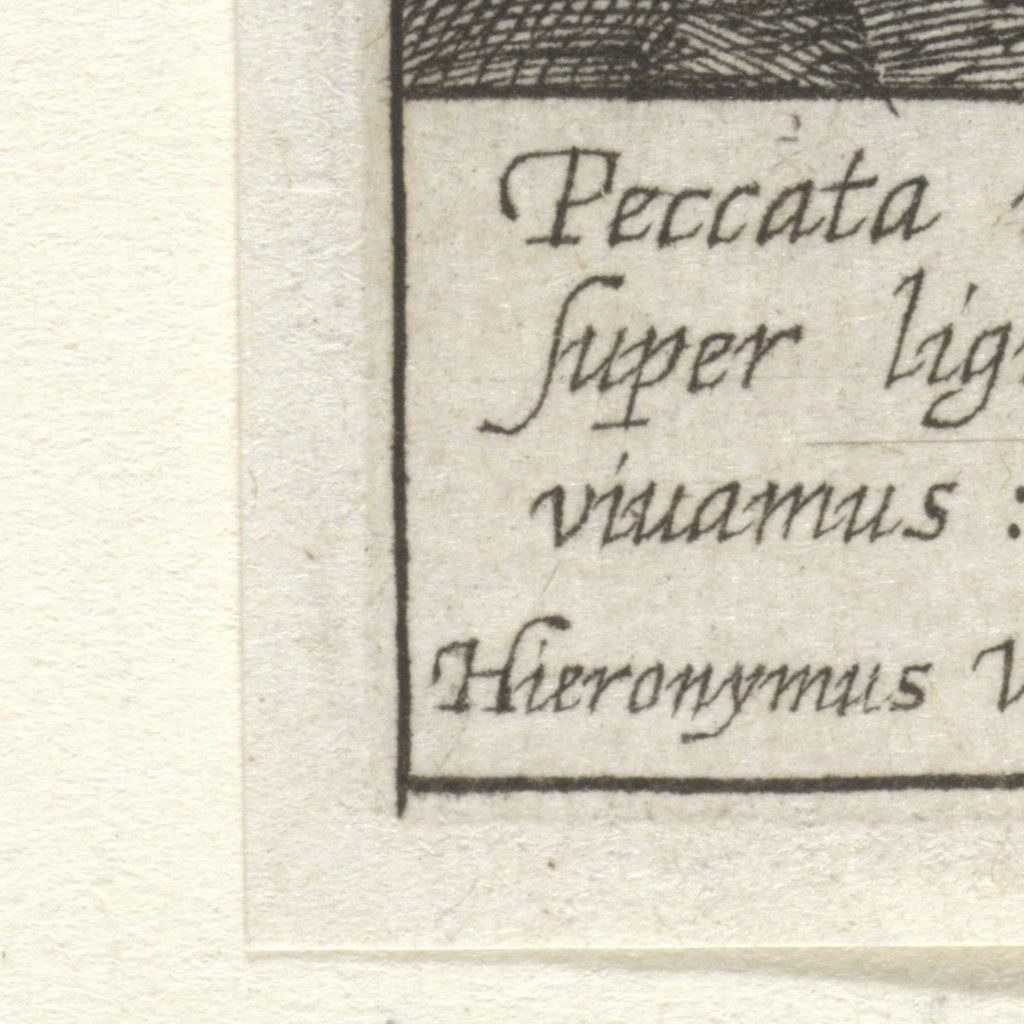 Peccata
ſuper lig
viuamus :
Hieronymus